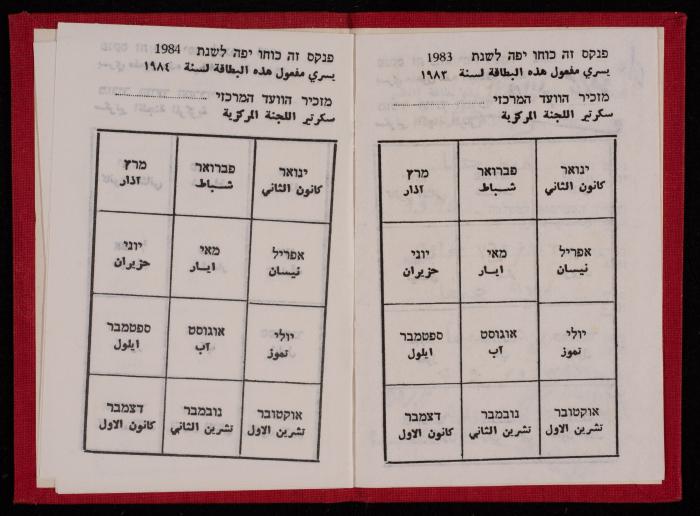 פנקס זה כוחו יפה לשנת 1983
يسري مفعول هذه البطاقة لسنة ١٩٨٣
מזכיר הוועד המרכזי
سكرتير اللجنة المركزية
ינואר פברואר מרץ
كانون الثاني شباط آذار
אפריל מאי יוני
نيسان ايار حزيران
יולי אוגוסט ספטמבר
تموز آب ايلول
אוקטובר נובמבר דצמבר
تشرين الاول تشرين الثاني كانون الاول
פנקס זה כוחו יפה לשנת 1984
يسري مفعول هذه البطاقة لسنة ١٩٨٤
מזכיר הוועד המרכזי
سكرتير اللجنة المركزية
ינואר פברואר מרץ
كانون الثاني شباط آذار
אפריל מאי יוני
نيسان ايار حزيران
יולי אוגוסט ספטמבר
تموز آب ايلول
אוקטובר נובמבר דצמבר
تشرين الاول تشرين الثاني كانون الاول